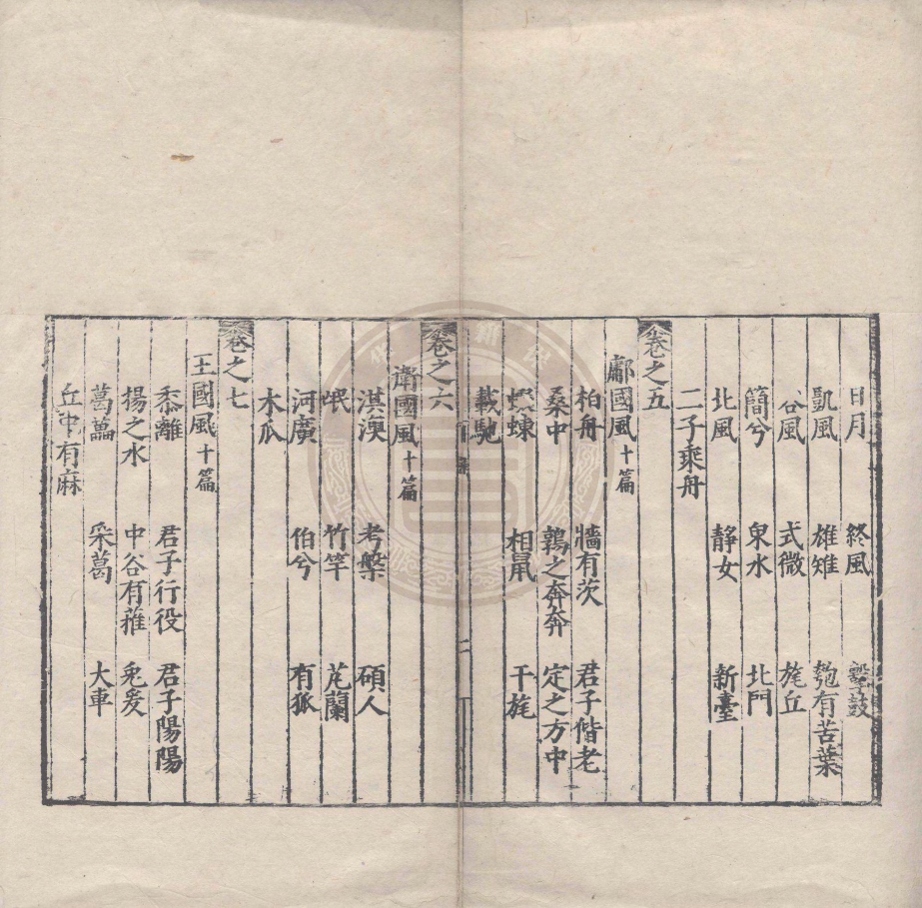 日月 終風 擊鼓
凱風 雄雉 匏有苦葉
谷風 式微 旄丘
簡兮 泉水 北門
北風 靜女 新臺
二子乘舟
卷之五
鄘國風十篇
柏舟 牆有茨 君子偕老
桑中 鶉之奔奔 定之方中
蝃蝀 相鼠 干旄
載馳
二
卷之六
衛國風十篇
淇澳 考槃 碩人
氓 竹竿 芄蘭
河廣 伯兮 有狐
木瓜
卷之七
王國風十篇
黍離 君子行役 君子陽陽
揚之水 中谷有蓷 兔爰
葛藟 采葛 大車
丘中有麻